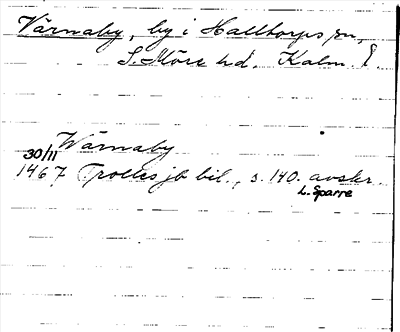 Värnaby, by i Halltorps sn,
S. Möre hd. Kalm. l.
Wärnaby
30/11
1467 Trolles jb bil., s. 140. avskr.
L. Sparre